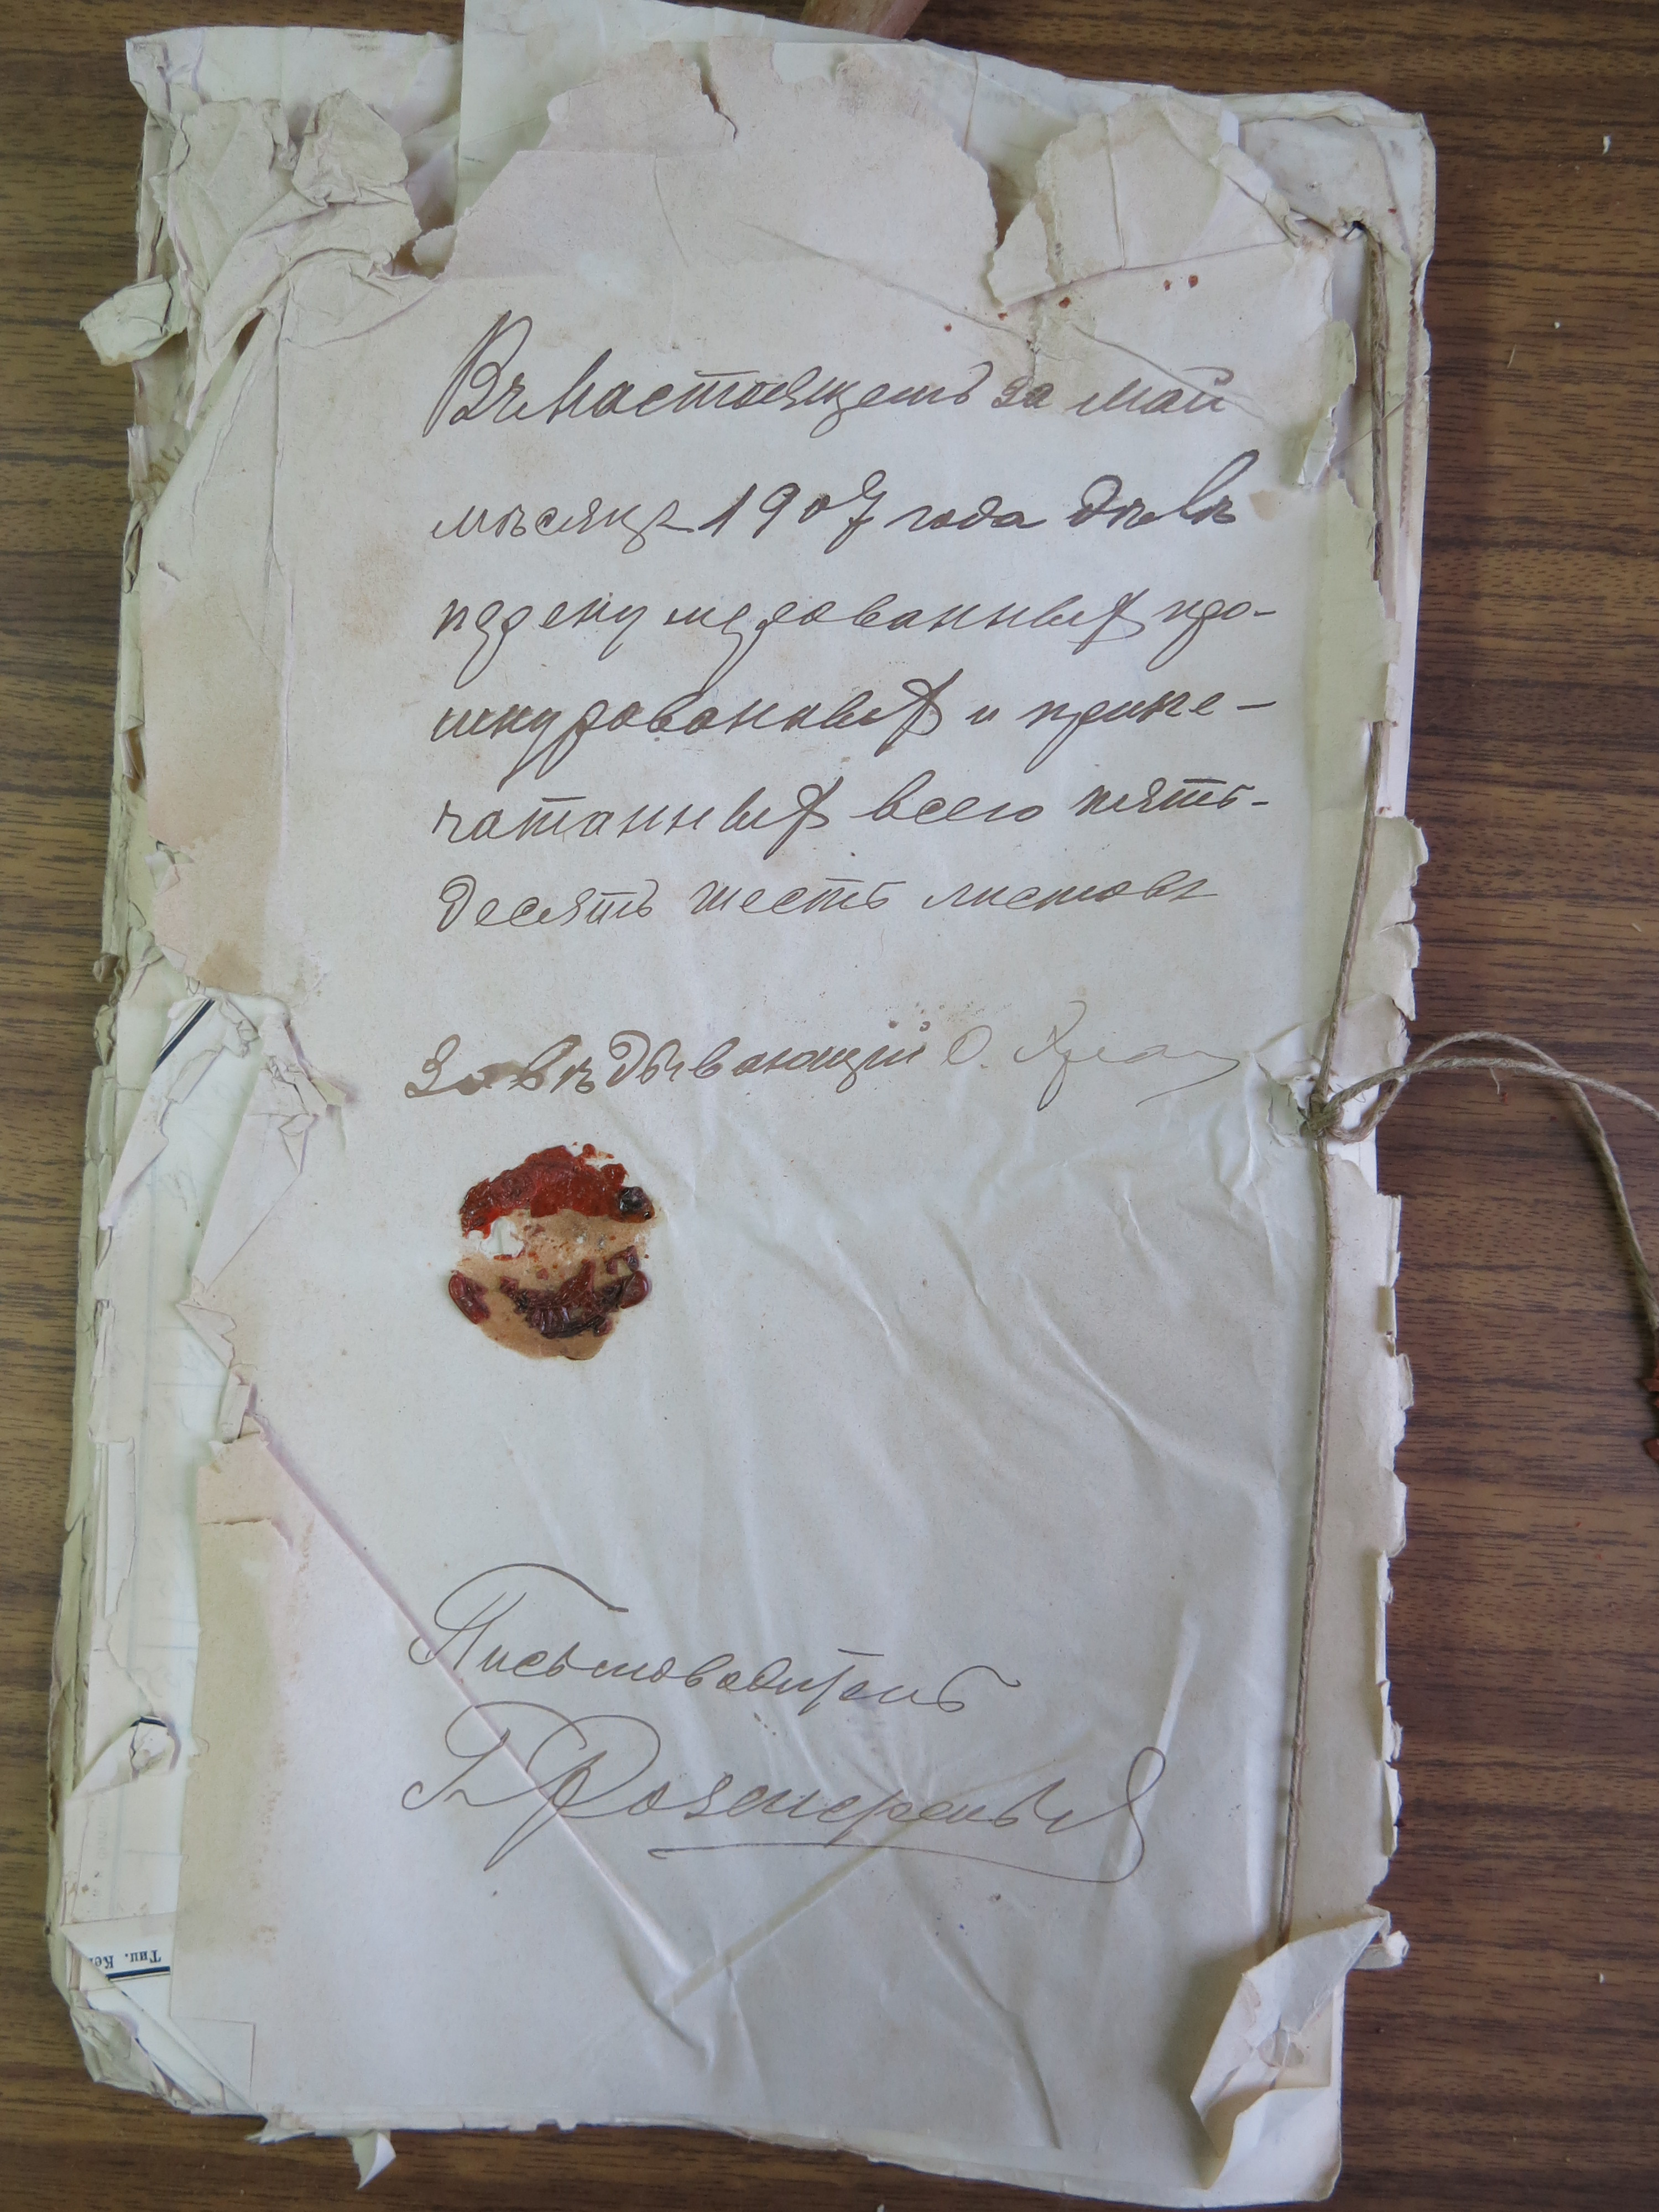 Въ настоящемъ за май
мѣсяцъ 1907 года дѣлѣ
пронумерованныхъ про-
шнурованныхъ и припе-
чатанныхъ всего пять-
десятъ шесть листовъ
Завѣдывающій
Письмоводитель
Тип. Ке